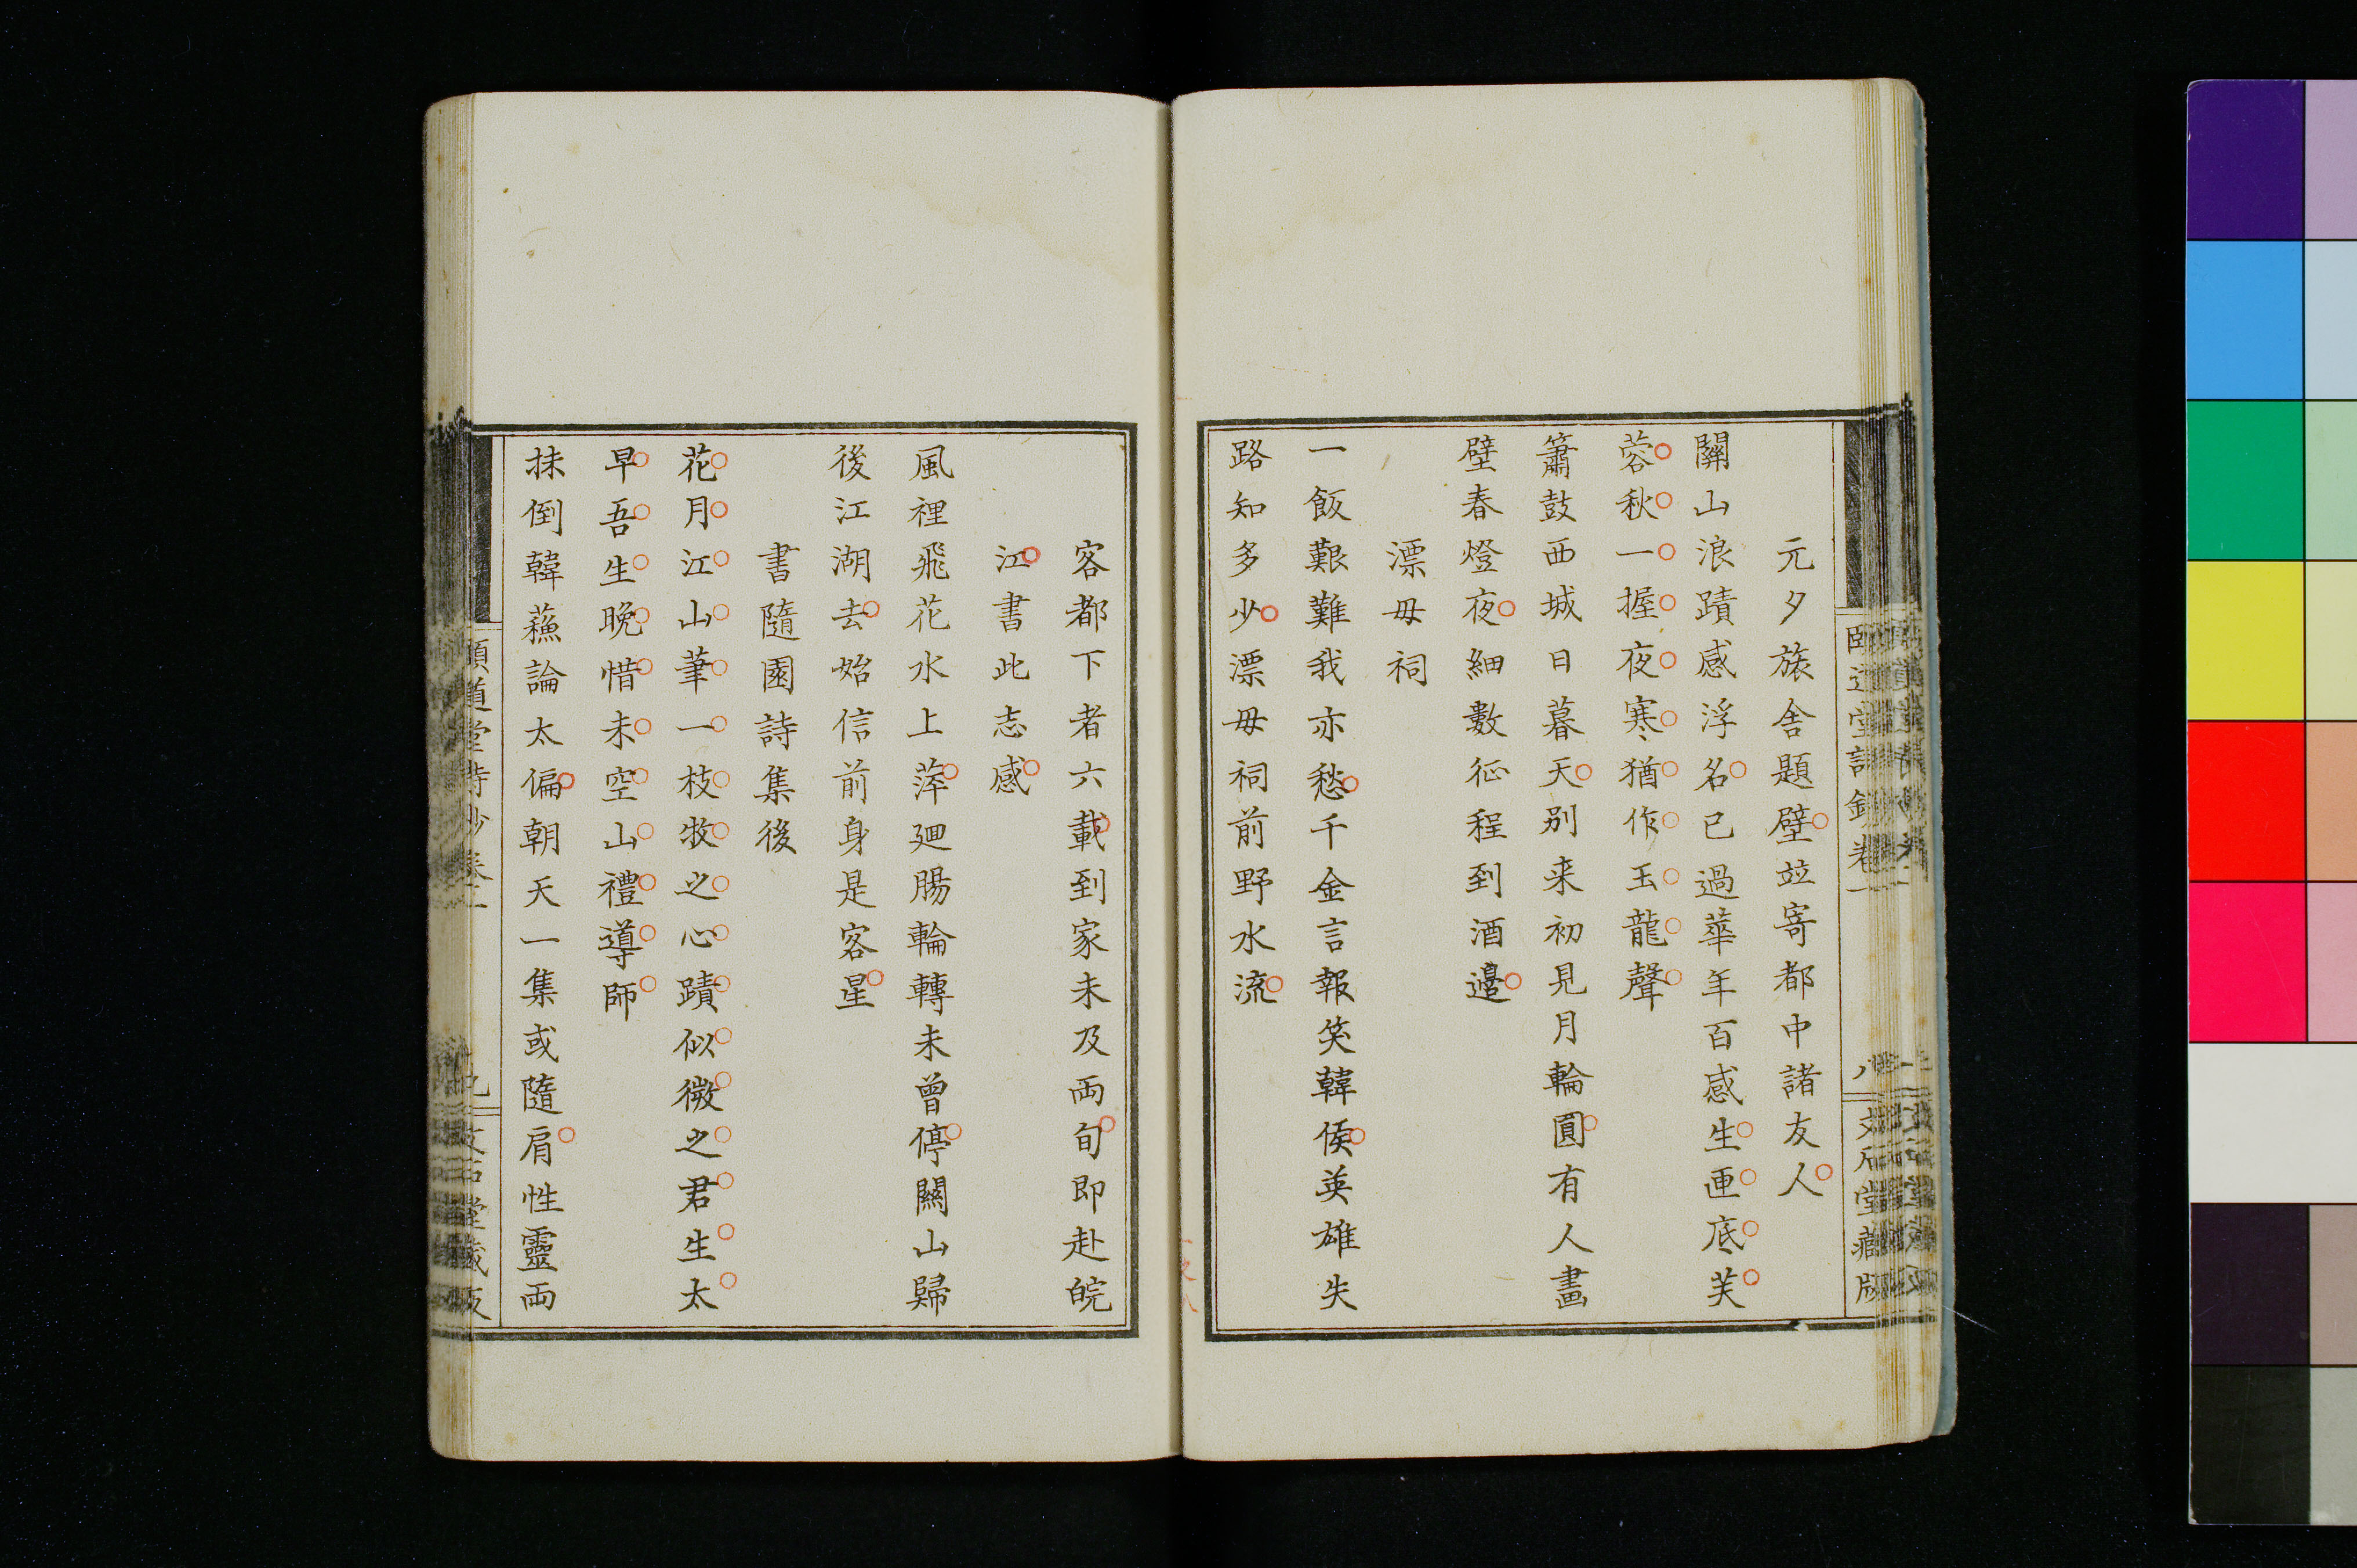 元夕旅舍題壁竝寄都中諸友人
關山浪蹟感浮名已過華年百感生匣底芙
蓉秋一握夜寒猶作玉龍聲
簫鼓西城日暮天別来初見月輪圓有人畫
壁春燈夜細數征程到酒邊
漂母祠
一飯艱難我亦愁千金言報笑韓侯英雄失
路知多少漂母祠前野水流
客都下者六載到家未及兩旬即赴皖
江書此志感
風裡飛花水上萍廻腸輪轉未曾停關山歸
後江湖去始信前身是客星
書隨園詩集後
花月江山筆一枝牧之心蹟似微之君生太
早吾生晚惜未空山禮導師
抹倒韓蘓論太偏朝天一集或隨肩性靈兩
頤道堂詩鈔卷二
九
文石堂藏版